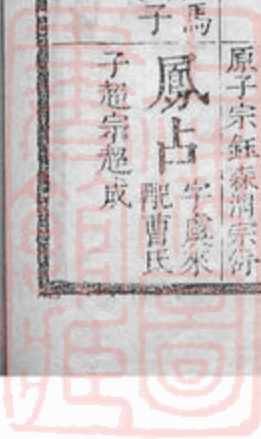 原子宗鈺森潤宗
馬
子
鳳占
字虞來
配曹氏
子超宗超成